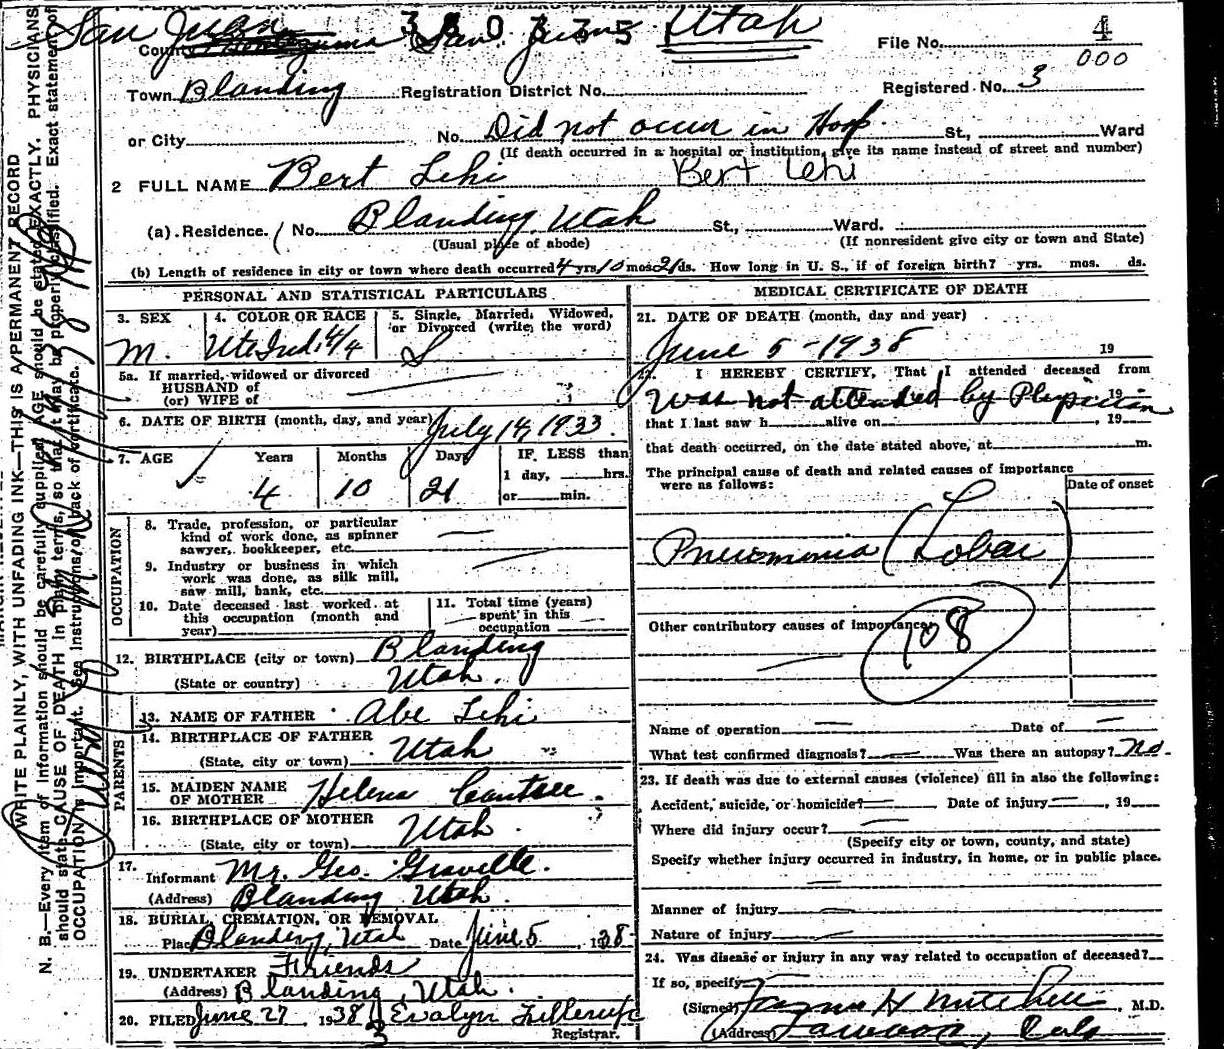 San Juan 380335 Utah
County San Juan File No. 4
000
Town Blanding Registration District No. Registered No. 3
or City No. Did not occur in Hosp. St., Ward
(If death occurred in a hospital or institution, give its name instead of street and number)
2 FULL NAME Bert Lehi Bert Lehi
(a) Residence. No. Blanding, Utah St., Ward.
(Usual place of abode) (If nonresident give city or town and State)
(b) Length of residence in city or town where death occurred 4 yrs 10 mos 21 ds. How long in U. S., if of foreign birth? yrs. mos. ds.
PERSONAL AND STATISTICAL PARTICULARS
3. SEX 4. COLOR OR RACE 5. Single, Married, Widowed,
or Divorced (write the word)
M. Ute Ind. 4/4 S
5a. If married, widowed or divorced
HUSBAND of
(or) WIFE of
6. DATE OF BIRTH (month, day, and year) July 14, 1933.
7. AGE Years Months Days IF LESS than
1 day, hrs.
4 10 21 or min.
OCCUPATION
8. Trade, profession, or particular
kind of work done, as spinner
sawyer, bookkeeper, etc.
9. Industry or business in which
work was done, as silk mill,
saw mill, bank, etc.
10. Date deceased last worked at
this occupation (month and
year)
11. Total time (years)
spent in this
occupation
12. BIRTHPLACE (city or town) Blanding
(State or country) Utah.
PARENTS
13. NAME OF FATHER Abe Lehi
14. BIRTHPLACE OF FATHER
(State, city or town) Utah
15. MAIDEN NAME
OF MOTHER Helena
16. BIRTHPLACE OF MOTHER
(State, city or town) Utah.
17.
Informant Mr. Geo.
(Address) Blanding Utah.
18. BURIAL, CREMATION, OR REMOVAL
Place Blanding, Utah Date June 5, 1938
19. UNDERTAKER Friends
(Address) Blanding, Utah.
20. FILED June 27 1938 Evalyn
3 Registrar.
MEDICAL CERTIFICATE OF DEATH
21. DATE OF DEATH (month, day and year)
June 5 - 1938 19
22. I HEREBY CERTIFY, That I attended deceased from
Was not attended by Physician 19
that I last saw h alive on , 19
that death occurred, on the date stated above, at m.
The principal cause of death and related causes of importance
were as follows: Date of onset
Pneumonia (Lobar)
Other contributory causes of importance:
108
Name of operation Date of
What test confirmed diagnosis? Was there an autopsy? No.
23. If death was due to external causes (violence) fill in also the following:
Accident, suicide, or homicide? Date of injury , 19
Where did injury occur?
(Specify city or town, county, and state)
Specify whether injury occurred in industry, in home, or in public place.
Manner of injury
Nature of injury
24. Was disease or injury in any way related to occupation of deceased?
If so, specify
(Signed) H Mitchell, M.D.
(Address)
WRITE PLAINLY, WITH UNFADING INK—THIS IS A PERMANENT RECORD
N. B.—Every item of information should be carefully supplied. AGE should be stated EXACTLY. PHYSICIANS
should state CAUSE OF DEATH in plain terms, so that it may be properly classified. Exact statement of
OCCUPATION is important. See instructions on back of certificate.